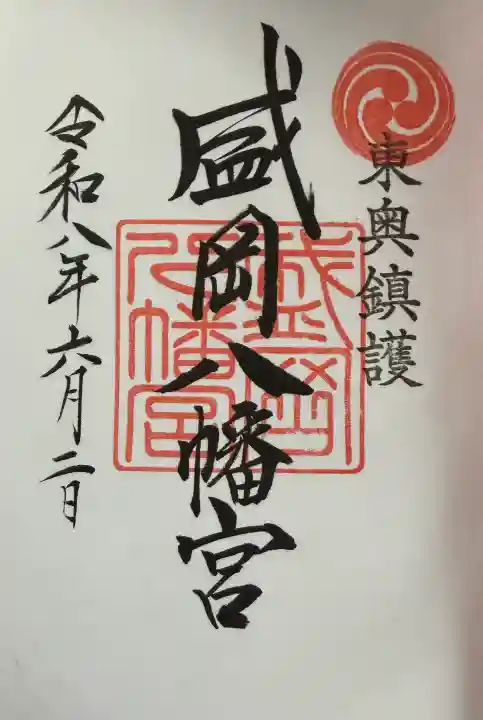 東奥鎮護
盛岡八幡宮
盛岡八幡宮
令和八年六月二日